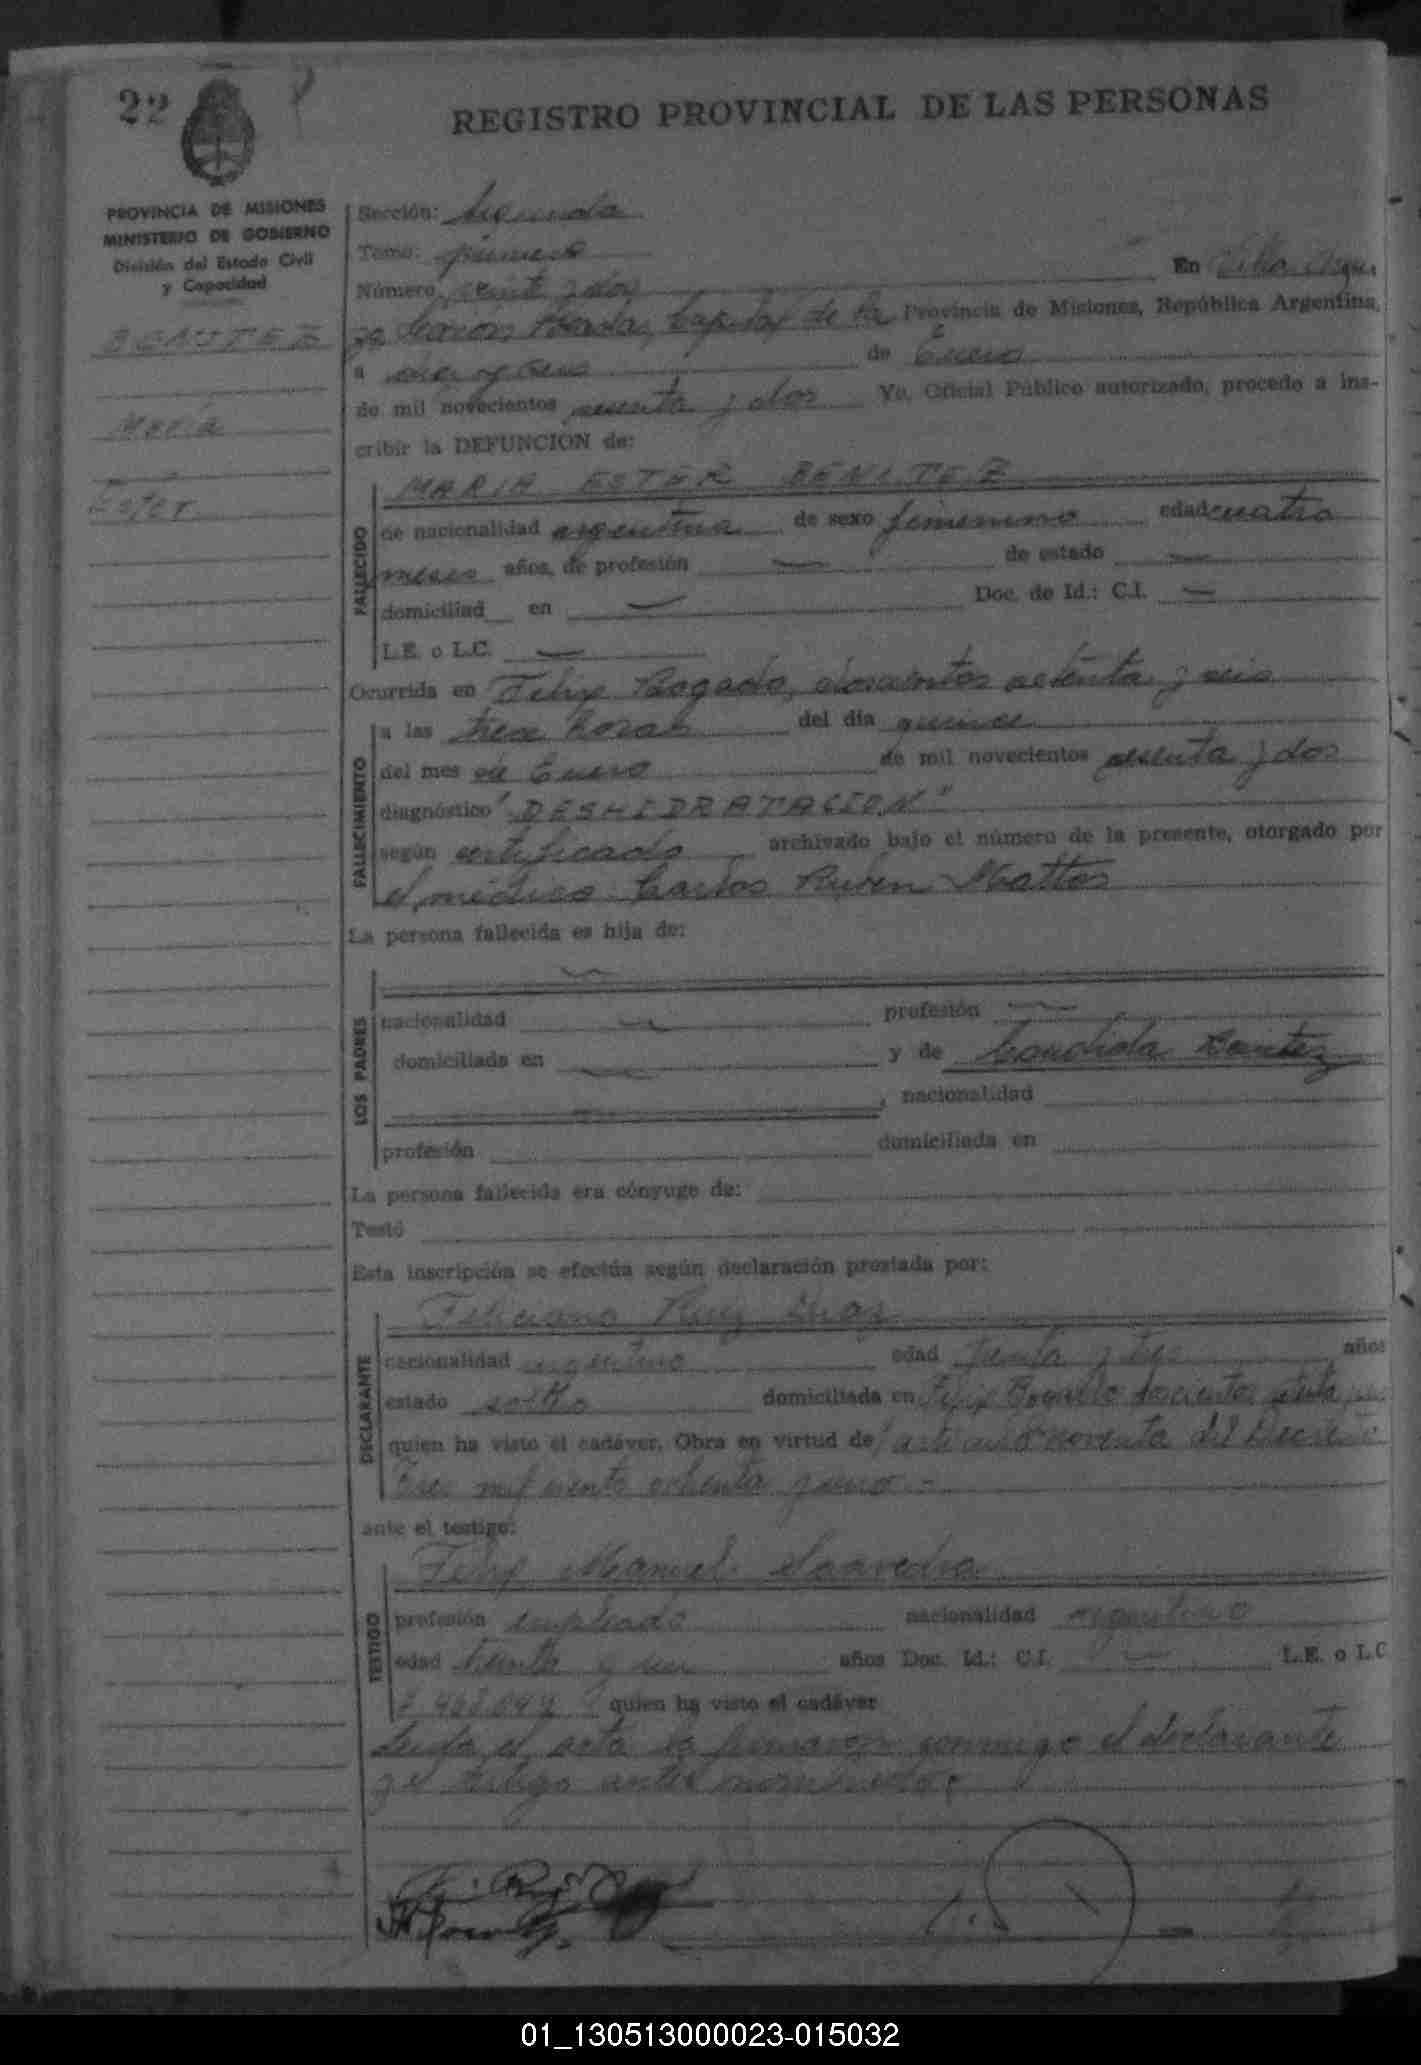 22
REGISTRO PROVINCIAL DE LAS PERSONAS
PROVINCIA DE MISIONES
MINISTERIO DE GOBIERNO
División del Estado Civil
y Capacidad
BENITEZ
María
Ester
Sección: Segunda
Tomo: primero
Número veinte y dos
En Villa
Posadas, Capital de la Provincia de Misiones, República Argentina,
a diez y seis de Enero
de mil novecientos sesenta y dos Yo, Oficial Público autorizado, procedo a ins-
cribir la DEFUNCION de:
FALLECIDO
MARIA ESTER BENITEZ
de nacionalidad argentina de sexo femenino edad cuatro
meses años, de profesión — de estado —
domiciliad en — Doc. de Id.: C.I. —
L.E. o L.C. —
Ocurrida en Felix Bogado, doscientos setenta y seis
FALLECIMIENTO
a las trece horas del día quince
del mes de Enero de mil novecientos sesenta y dos
diagnóstico "DESHIDRATACION"
según certificado archivado bajo el número de la presente, otorgado por
el médico Carlos Ruben Mattos
La persona fallecida es hija de:
LOS PADRES
—
nacionalidad — profesión —
domiciliada en — y de Candida Benitez
—, nacionalidad
profesión domiciliada en
La persona fallecida era cónyuge de:
Testó
Esta inscripción se efectúa según declaración prestada por:
DECLARANTE
Feliciano Ruiz Diaz
nacionalidad argentino edad treinta y tres años
estado soltero domiciliada en Felix Bogado doscientos setenta
quien ha visto el cadáver. Obra en virtud de articulo noventa del Decreto
tres mil ciento ochenta y uno.-
ante el testigo:
TESTIGO
Felix Manuel Saavedra
profesión empleado nacionalidad argentino
edad treinta y un años Doc. Id.: C.I. — L.E. o L.C
quien ha visto el cadáver
Leida el acta la firmaron conmigo el declarante
y el testigo antes nombrados:
01_130513000023-015032